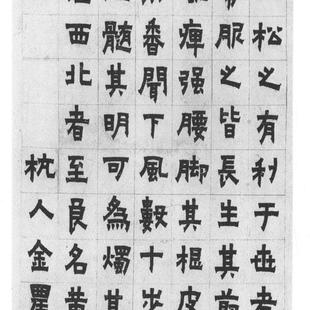 松之有利于世者
服之皆長生其
痺强腰脚其根皮
香聞下風數十步
髓其明可為燭其
西北者至良名黄
杭人金